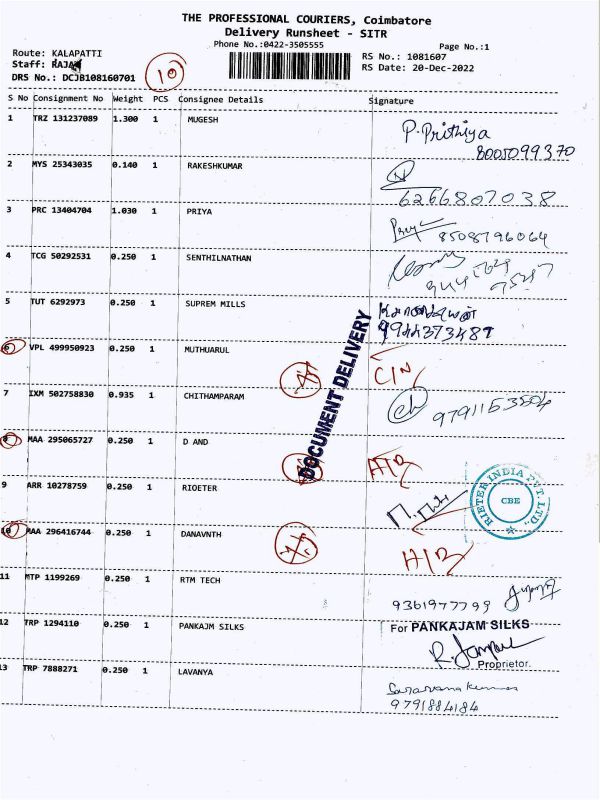 THE PROFESSIONAL COURIERS, Coimbatore
Delivery Runsheet - SITR
Phone No.:0422-3505555
Page No.:1
Route: KALAPATTI
RS No.: 1081607
Staff: RAJA
RS Date: 20-Dec-2022
DRS No.: DCJB108160701
10
S No Consignment No Weight PCS Consignee Details Signature
1 TRZ 131237089 1.300 1 MUGESH P. Prithiya
8005099370
2 MYS 25343035 0.140 1 RAKESHKUMAR
6266807038
3 PRC 13404704 1.030 1 PRIYA Priya
8508796064
4 TCG 50292531 0.250 1 SENTHILNATHAN
5 TUT 6292973 0.250 1 SUPREM MILLS
9944373487
DOCUMENT DELIVERY
6 VPL 499950923 0.250 1 MUTHUARUL C/N
7 IXM 502758830 0.935 1 CHITHAMPARAM
9791153504
8 MAA 295065727 0.250 1 D AND
9 ARR 10278759 0.250 1 RIOETER
RIETER INDIA PVT. LTD.,
CBE
10 MAA 296416744 0.250 1 DANAVNTH
11 MTP 1199269 0.250 1 RTM TECH
9361977799
12 TRP 1294110 0.250 1 PANKAJM SILKS For PANKAJAM SILKS
Proprietor.
13 TRP 7888271 0.250 1 LAVANYA Saravana kumar
9791884184